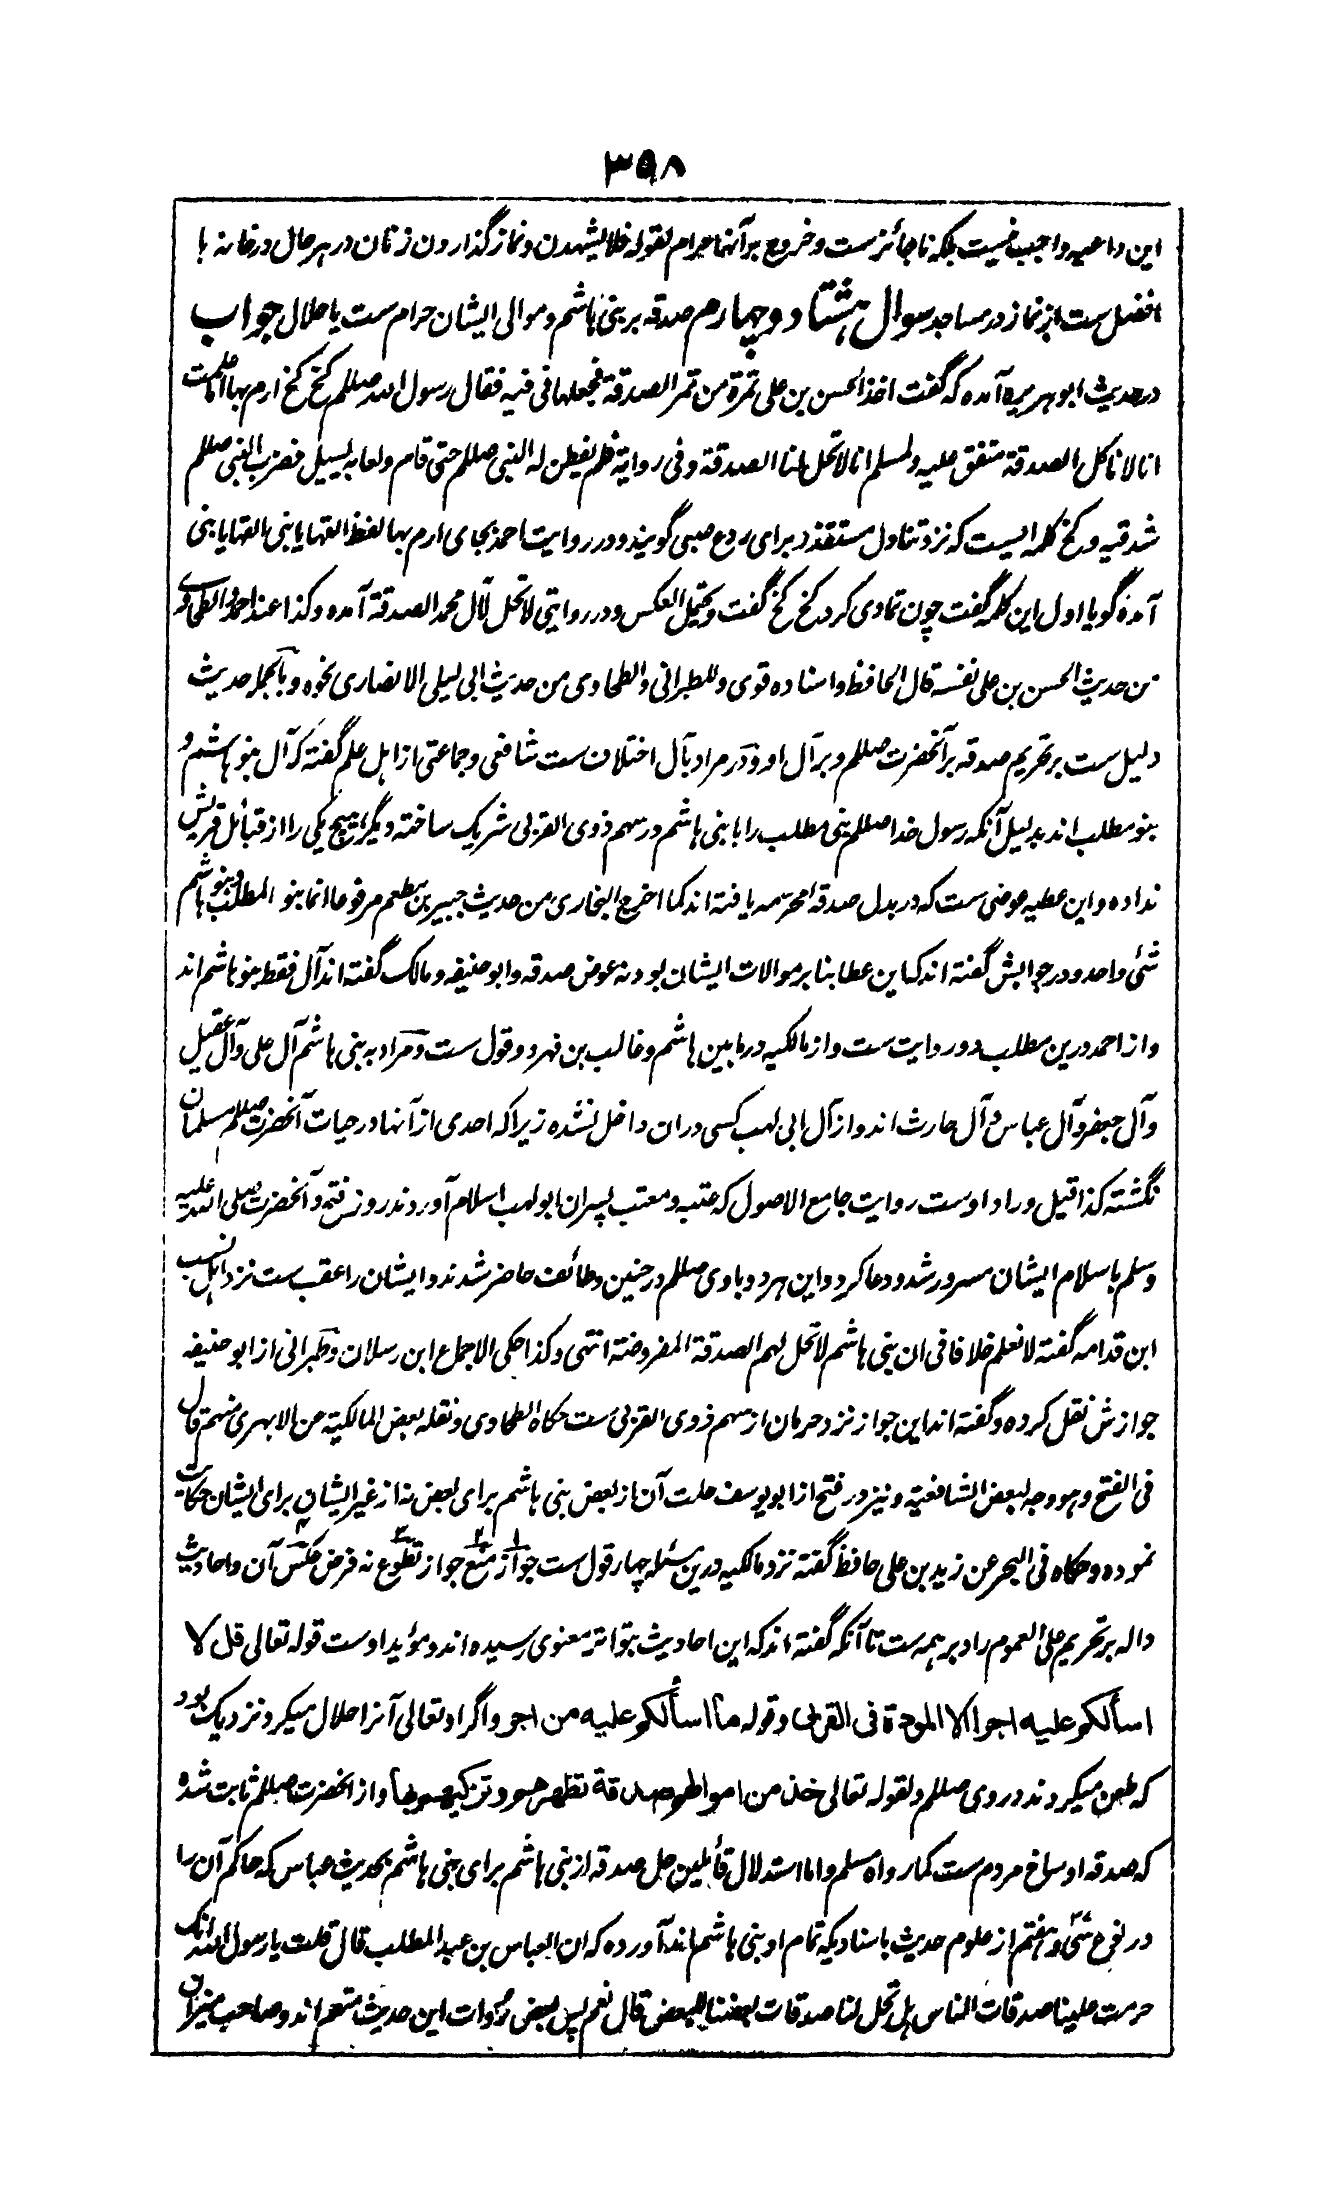 ۳۹۸
این داعیه واجب نیست بلکه ناجائز ست و خروج بر آنها حرام لقوله فلا یشهدن و نماز گذاردن زنان در هر حال در خانه ها
افضل ست از نماز در مساجد سوال هشتاد و چهارم صدقه بر بنی هاشم و موالی ایشان حرام ست یا حلال جواب
در حدیث ابو هریره آمده که گفت اخذ الحسن بن علی تمرة من تمر الصدقة فجعلها فی فیه فقال رسول الله صللم کخ کخ ارم بها اما علمت
انا لا ناکل الصدقة متفق علیه و لمسلم انا لا تحل لنا الصدقة و فی روایة فلم یفطن له النبی صللم حتی قام و لعابه یسیل فضرب النبی صللم
شدقیه و کخ کلمه ایست که نزد تناول مستقذر برای ردع صبی گویند و در روایت احمد بجای ارم بها لفظ القها یا بنی القها یا بنی
آمده گویا اول این کلمه گفت چون تمادی کرد کخ کخ گفت و یحتمل العکس و در روایتی لا تحل لآل محمد الصدقة آمده و کذا عند احمد و الطحاوی
من حدیث الحسن بن علی نفسه قال الحافظ و اسناده قوی و للطبرانی و الطحاوی من حدیث ابی لیلی الانصاری نحوه و بالجمله حدیث
دلیل ست بر تحریم صدقه بر آنحضرت صللم و بر آل او و در مراد بآل اختلاف ست شافعی و جماعتی از اهل علم گفته که آل بنو هاشم و
بنو مطلب اند بدلیل آنکه رسول خدا صللم بنی مطلب را با بنی هاشم در سهم ذوی القربی شریک ساخته و دیگر هیچ یکی را از قبائل قریش
نداده و این عطیه عوضی ست که در بدل صدقه محرمه یافته اند کما اخرج البخاری من حدیث جبیر بن مطعم مرفوعا انما بنو المطلب و بنو هاشم
شئ واحد و در جوابش گفته اند که این عطا بنا بر موالات ایشان بود نه عوض صدقه و ابو حنیفه و مالک گفته اند آل فقط بنو هاشم اند
و از احمد درین مطلب دو روایت ست و از مالکیه در ما بین هاشم و غالب بن فهر دو قول ست و مراد به بنی هاشم آل علی و آل عقیل
و آل جعفر و آل عباس و آل حارث اند و از آل ابی لهب کسی دران داخل نشده زیرا که احدی از آنها در حیات آنحضرت صللم مسلمان
نگشته کذا قیل و راد اوست روایت جامع الاصول که عتبه و معتب پسران ابو لهب اسلام آوردند روز فتح و آنحضرت صلی الله علیه
وسلم با سلام ایشان مسرور شد و دعا کرد و این هر دو با وی صللم در حنین و طائف حاضر شدند و ایشان را عقب ست نزد اهل نسب
ابن قدامه گفته لا نعلم خلافا فی ان بنی هاشم لا تحل لهم الصدقة المفروضة انتهی و کذا حکی الاجماع ابن رسلان و طبرانی از ابو حنیفه
جوازش نقل کرده و گفته اند این جواز نزد حرمان از سهم ذوی القربی ست حکاه الطحاوی و نقله بعض المالکیة من الابهری منهم قال
فی الفتح و هو وجه لبعض الشافعیة و نیز در فتح از ابو یوسف حلت آن از بعض بنی هاشم برای بعض نه از غیر ایشان برای ایشان حکایت
نموده و حکاه فی البحر عن زید بن علی حافظ گفته نزد مالکیه درین مسئله چهار قول ست جواز منع جواز تطوع نه فرض عکس آن و احادیث
داله بر تحریم علی العموم راد بر همه ست تا آنکه گفته اند که این احادیث بتواتر معنوی رسیده اند و مؤید اوست قوله تعالی قل لا
اسألکم علیه اجرا الا المودة فی القربی و قوله ما اسألکم علیه من اجر و اگر او تعالی آنرا حلال میکرد نزدیک بود
که طعن میکردند در وی صللم و لقوله تعالی خذ من اموالهم صدقة تطهرهم و تزکیهم بها و از آنحضرت صللم ثابت شده
که صدقه اوساخ مردم ست کما رواه مسلم و اما استدلال قائلین حل صدقه از بنی هاشم برای بنی هاشم بحدیث عباس که حاکم آن را
در نوع سی و هفتم از علوم حدیث باسنادیکه تمام او بنی هاشم اند آورده که ان العباس بن عبد المطلب قال قلت یا رسول الله انک
حرمت علینا صدقات الناس هل تحل لنا صدقات بعضنا لبعض قال نعم پس بعض روات این حدیث متهم اند و صاحب میزان